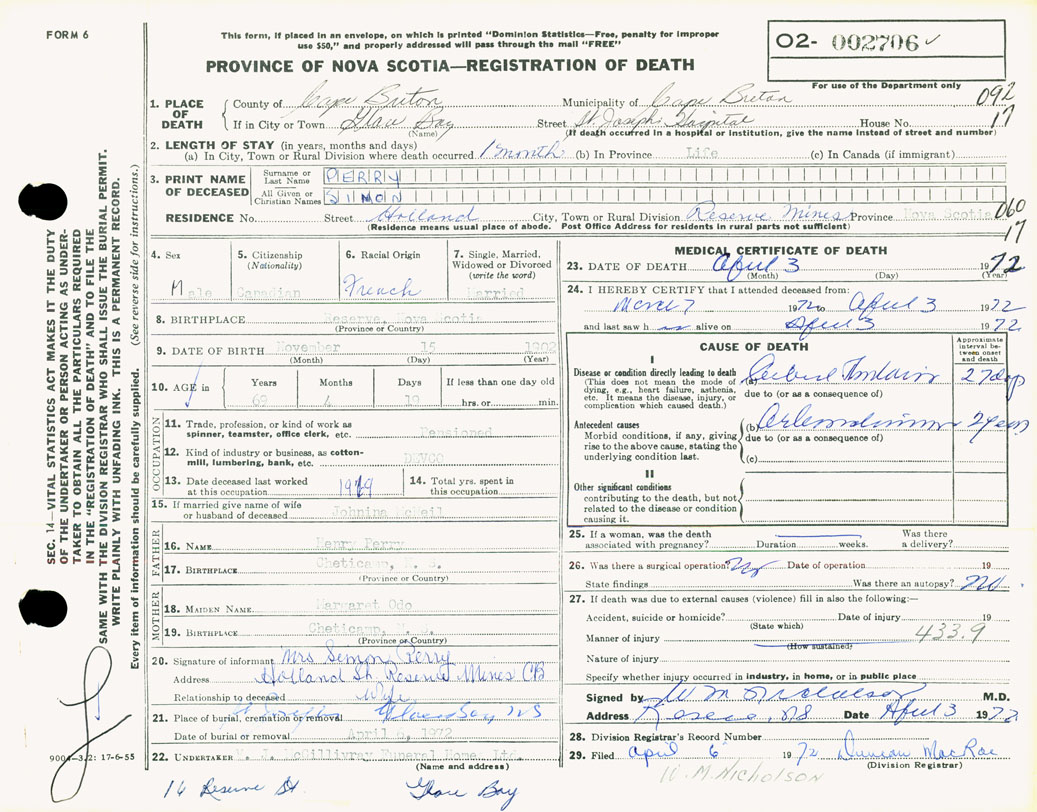 FORM 6
This form, if placed in an envelope, on which is printed "Dominion Statistics—Free, penalty for improper
use $50," and properly addressed will pass through the mail "FREE"
O2- 002706 ✓
For use of the Department only
PROVINCE OF NOVA SCOTIA—REGISTRATION OF DEATH
092
17
1. PLACE OF DEATH
County of Cape Breton Municipality of Cape Breton
If in City or Town Glace Bay Street St. Josephs Hospital House No.
(Name) (If death occurred in a hospital or institution, give the name instead of street and number)
2. LENGTH OF STAY (in years, months and days)
(a) In City, Town or Rural Division where death occurred 1 month (b) In Province Life (c) In Canada (if immigrant)
3. PRINT NAME OF DECEASED
Surname or Last Name PERRY
All Given or Christian Names SIMON
RESIDENCE No. Street Holland City, Town or Rural Division Reserve Mines Province Nova Scotia
060
17
(Residence means usual place of abode. Post Office Address for residents in rural parts not sufficient)
4. Sex
Male
5. Citizenship
(Nationality)
Canadian
6. Racial Origin
French
7. Single, Married,
Widowed or Divorced
(write the word)
Married
8. BIRTHPLACE Reserve, Nova Scotia
(Province or Country)
9. DATE OF BIRTH November 15 1902
(Month) (Day) (Year)
10. AGE in
Years Months Days If less than one day old
69 4 19 hrs. or min.
OCCUPATION
11. Trade, profession, or kind of work as
spinner, teamster, office clerk, etc. Pensioned
12. Kind of industry or business, as cotton-
mill, lumbering, bank, etc. DEVCO
13. Date deceased last worked
at this occupation 19
14. Total yrs. spent in
this occupation
15. If married give name of wife
or husband of deceased Johnina McNeil
FATHER
16. NAME Henry Perry
17. BIRTHPLACE Cheticamp, N. S.
(Province or Country)
MOTHER
18. MAIDEN NAME Margaret Odo
19. BIRTHPLACE Cheticamp, N. S.
(Province or Country)
20. Signature of informant Mrs Simon Perry
Address Holland St. Reserve Mines CB
Relationship to deceased Wife
21. Place of burial, cremation or removal Glace Bay NS
Date of burial or removal April 6, 1972
22. UNDERTAKER McGillivrey Funeral Home, Ltd.
(Name and address)
16 Reserve St. Glace Bay
MEDICAL CERTIFICATE OF DEATH
23. DATE OF DEATH April 3 1972
(Month) (Day) (Year)
24. I HEREBY CERTIFY that I attended deceased from:
March 7 1972 to April 3 1972
and last saw h im alive on April 3 1972
CAUSE OF DEATH
Approximate interval between onset and death
I
Disease or condition directly leading to death
(This does not mean the mode of
dying, e.g., heart failure, asthenia,
etc. It means the disease, injury, or
complication which caused death.)
(a) 27 days
due to (or as a consequence of)
Antecedent causes
Morbid conditions, if any, giving
rise to the above cause, stating the
underlying condition last.
(b) 2 years
due to (or as a consequence of)
(c)
II
Other significant conditions
contributing to the death, but not
related to the disease or condition
causing it.
25. If a woman, was the death
associated with pregnancy? Duration weeks. Was there
a delivery?
26. Was there a surgical operation? No Date of operation 19
State findings Was there an autopsy? No.
27. If death was due to external causes (violence) fill in also the following:—
Accident, suicide or homicide? Date of injury 19
(State which)
Manner of injury 433.9
(How sustained)
Nature of injury
Specify whether injury occurred in industry, in home, or in public place
Signed by W M Nicholson M.D.
Address Reserve, NS Date April 3 1972
28. Division Registrar's Record Number
29. Filed April 6 1972 Duncan MacRae
(Division Registrar)
W. M. NICHOLSON
SEC. 14—VITAL STATISTICS ACT MAKES IT THE DUTY
OF THE UNDERTAKER OR PERSON ACTING AS UNDER-
TAKER TO OBTAIN ALL THE PARTICULARS REQUIRED
IN THE "REGISTRATION OF DEATH" AND TO FILE THE
SAME WITH THE DIVISION REGISTRAR WHO SHALL ISSUE THE BURIAL PERMIT.
WRITE PLAINLY WITH UNFADING INK. THIS IS A PERMANENT RECORD.
Every item of information should be carefully supplied. (See reverse side for instructions.)
9004-3.2: 17-6-55